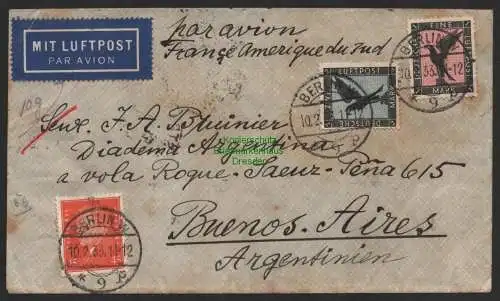 MIT LUFTPOST
PAR AVION
par avion
France Amerique du sud
109
Senr. J. A. Bhuinier
Diadema Argentina
a vola Roque-Saenz-Peña 615
Buenos-Aires
Argentinien
BERLIN W
10.2.33.11-12
* 9 p
LUFTPOST
DEUTSCHE
BERLIN
10.2
EINE
MARK
33.11-12
* 9 p
Briefmarkenhaus
Dresden